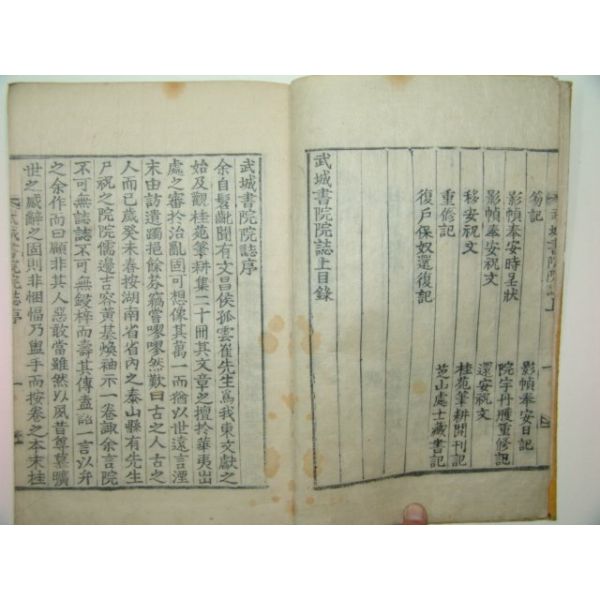 武城書院院誌上
笏記
影幀奉安日記
影幀奉安時呈狀
院宇丹雘重修記
影幀奉安祝文
還安祝文
移安祝文
桂苑筆耕開刊記
重修記
芝山處士藏書記
復戶保奴還復記
武城書院院誌上目錄
武城書院院誌序
余自髮齓聞有文昌侯孤雲崔先生爲我東文獻之
始及觀桂苑筆耕集二十冊其文章之擅於華夷出
處之審於治亂固可想像其萬一而猶以世遠言湮
末由訪遺躅挹餘芬竊嘗嘐嘐然歎曰古之人古之
人而已歲癸未春按湖南省省內之泰山縣有先生
尸祝之院院儒邊吉容黃基煥袖示一卷諏余言院
不可無誌誌不可無鋟梓而壽其傳盍記一言以弁
之余作而曰顧非其人惡敢當雖然以夙昔尊慕曠
世之感辭之固則非悃愊乃盥手而按卷之本末桂
武城書院院誌序